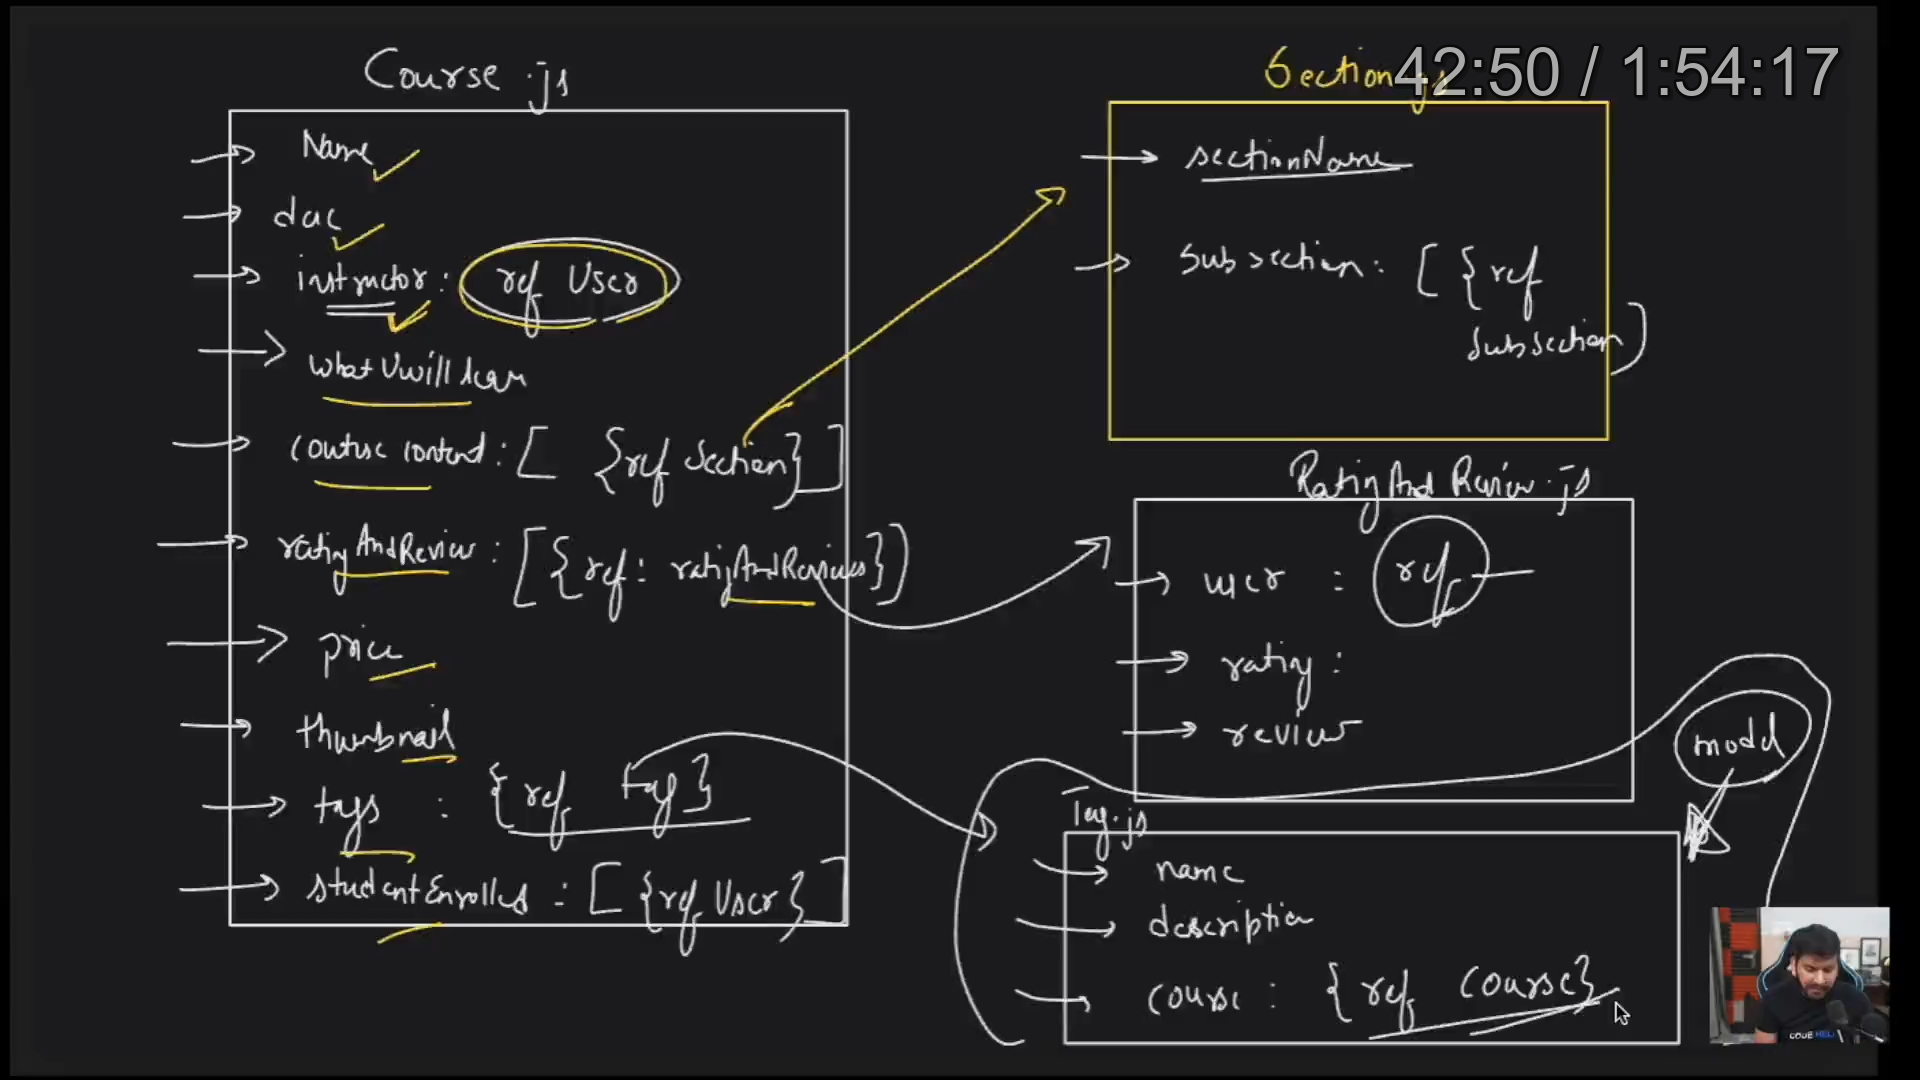 Course.js
Name
desc
instructor: ref User
whatUwill learn
course content: [ {ref Section} ]
ratingAndReview: [{ref: ratingAndReviews}]
price
thumbnail
tags : {ref tag}
studentEnrolled : [{ref User}]
Section.js
42:50 / 1:54:17
sectionName
Subsection: [{ref
subsection]
RatingAndReview.js
user : ref
rating:
review
model
Tag.js
name
description
course : {ref Course}
CODE HELP